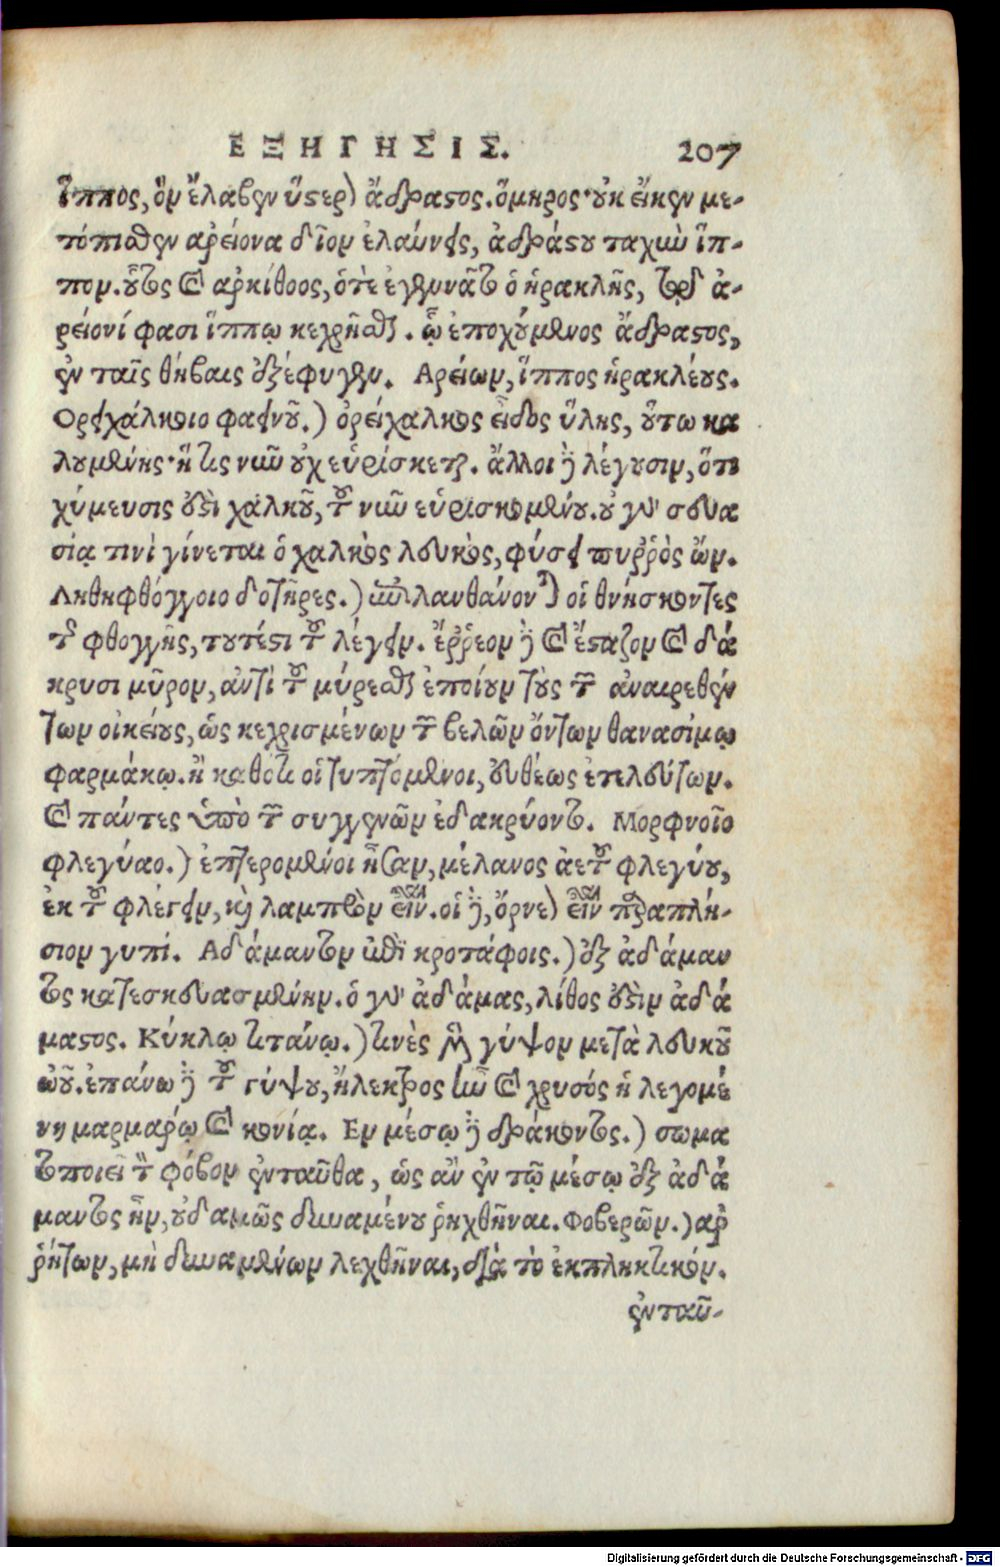 ΕΞΗΓΗΣΙΣ. 207
ἵππος, ὃν ἔλαβεν ὕστερον ἄδραστος. ὅμηρος· οὐκ εἴκεν με-
τόπισθεν ἀρείονα δῖον ἐλαύνεις, ἀδράστου ταχὺν ἵπ-
πον. οὗτος καὶ ἀρκίθοος, ὅτε ἐγυμνᾶτο ὁ ἡρακλῆς, τῷ ἀ-
ρείονί φασι ἵππῳ κεχρῆσθαι. ᾧ ἐποχούμενος ἄδραστος,
ἐν ταῖς θήβαις ἐξέφυγεν. Αρείων, ἵππος ἡρακλέους.
Ορειχάλκοιο φαεινοῦ.) ὀρείχαλκος εἶδος ὕλης, οὕτω κα
λουμένης· ἥ τις νῦν οὐχ εὑρίσκεται. ἄλλοι δὲ λέγουσιν, ὅτι
χύμευσις ἐστὶ χαλκοῦ, τοῦ νῦν εὑρισκομένου. οὐ γὰρ σκευα
σίᾳ τινὶ γίνεται ὁ χαλκὸς λευκὸς, φύσει πυῤῥὸς ὤν.
Ληθηφθόγγοιο δοτῆρες.) ἐπιλανθάνονται οἱ θνήσκοντες
τῆς φθογγῆς, τουτέστι τοῦ λέγειν. ἔῤῥεον δὲ καὶ ἔσταζον καὶ δά
κρυσι μῦρον, ἀντὶ τοῦ μύρεσθαι ἐποίουν τοὺς τῶν ἀναιρεθέν
των οἰκείους, ὡς κεχρισμένων τῶν βελῶν ὄντων θανασίμῳ
φαρμάκῳ. ἢ καθότι οἱ τυπτόμενοι, εὐθέως ἐτελεύτων.
καὶ πάντες ὑπὸ τῶν συγγενῶν ἐδακρύοντο. Μορφνοῖο
φλεγύαο.) ἐπτερωμένοι ἦσαν, μέλανος ἀετοῦ φλεγύου,
ἐκ τοῦ φλέγειν, καὶ λαμπρὸν εἶναι. οἱ δὲ, ὄρνεον εἶναι παραπλή-
σιον γυπί. Αδάμαντον ἐπὶ κροτάφοις.) ἐξ ἀδάμαν
τος κατεσκευασμένην. ὁ γὰρ ἀδάμας, λίθος ἐστὶν ἀδά
μαστος. Κύκλῳ τιτάνῳ.) τινὲς μὲν γύψον μετὰ λευκοῦ
ὠοῦ. ἐπάνω δὲ τοῦ γύψου, ἤλεκτρος ἦν καὶ χρυσός ἡ λεγομέ
νη μαρμαρίῳ καὶ κονίᾳ. Εν μέσῳ δὲ δράκοντος.) σωμα
τοποιεῖ τὸν φόβον ἐνταῦθα, ὡς ἂν ἐν τῷ μέσῳ ἐξ ἀδά
μαντος ἦν, οὐδαμῶς δυναμένου ῥηχθῆναι. Φοβερῶν.) ἀῤ
ῥήτων, μὴ δυναμένων λεχθῆναι, διὰ τὸ ἐκπληκτικόν.
ἐνταῦ-
Digitalisierung gefördert durch die Deutsche Forschungsgemeinschaft - DFG